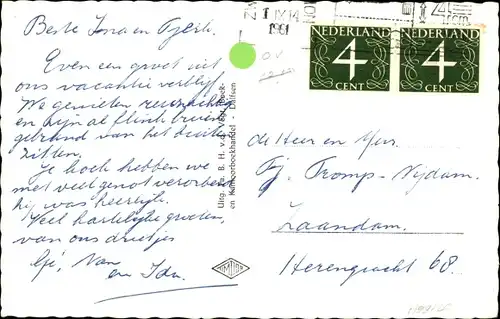 Beste Jona en Tjeik.
Even een groet uit
ons vacantie verblijf.
We genieten reusachtig
en zijn al flink bruin
gebrand van het buiten
zitten.
Je koek hebben we
met veel genot verorberd
hij was heerlijk.
Veel hartelijke groeten,
van ons drietjes
Gé, Nan
en Ida.
Uitg. Fa. B. H. v. Boek-
en Kantoorboekhandel - Dalfsen
1961
NEDERLAND
4
CENT
NEDERLAND
4
CENT
de Heer en Mevr.
Tj. Tromp-Nijdam.
Zaandam.
Herengracht 68.